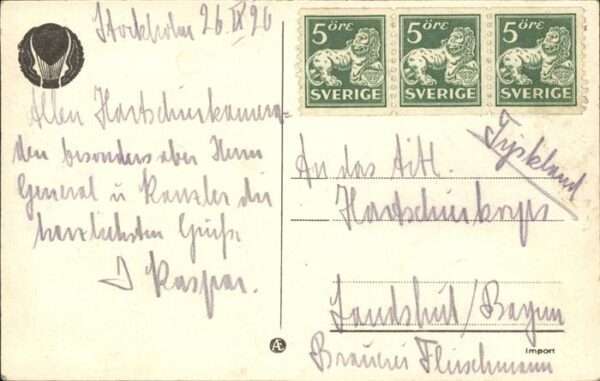 Stockholm 26 IX 26
Allen Hartschierkamera-
den besonders aber Herrn
General u Kanzler die
herzlichsten Grüße
J Kaspar.
5 ÖRE 5 ÖRE 5 ÖRE
SVERIGE SVERIGE SVERIGE
Tyskland
An das titl.
Hartschierkorps
Landshut/Bayern
Brauerei Fleischmann
Import